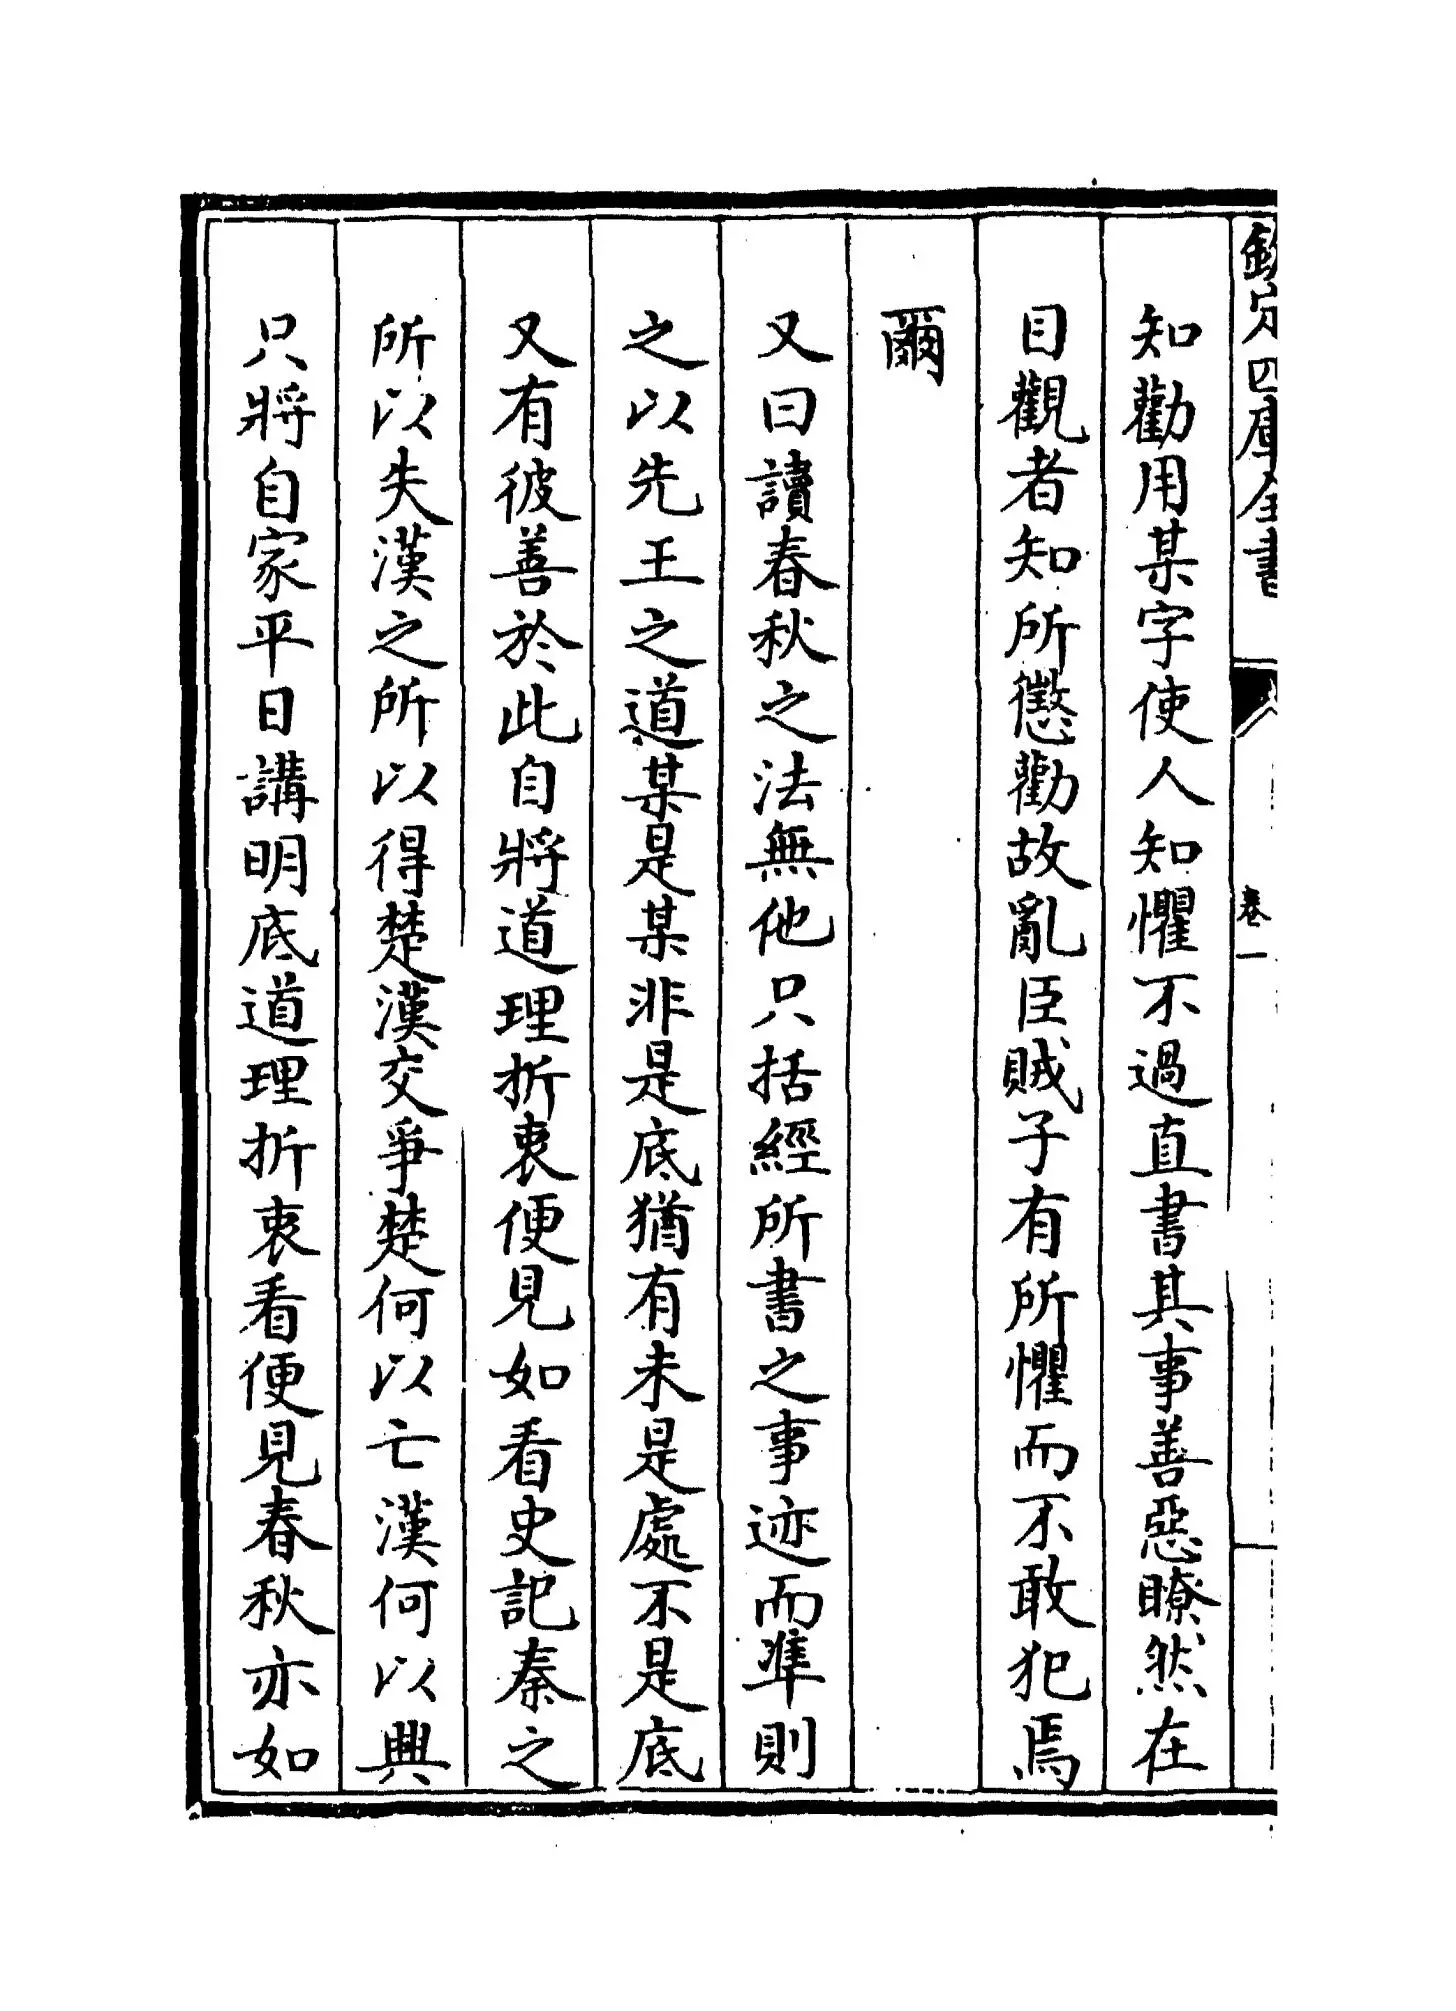 欽定四庫全書
卷一
知勸用某字使人知懼不過直書其事善惡瞭然在
目觀者知所懲勸故亂臣賊子有所懼而不敢犯焉
爾
又曰讀春秋之法無他只括經所書之事迹而準則
之以先王之道某是某非是底猶有未是處不是底
又有彼善於此自將道理折衷便見如看史記秦之
所以失漢之所以得楚漢交爭楚何以亡漢何以興
只將自家平日講明底道理折衷看便見春秋亦如